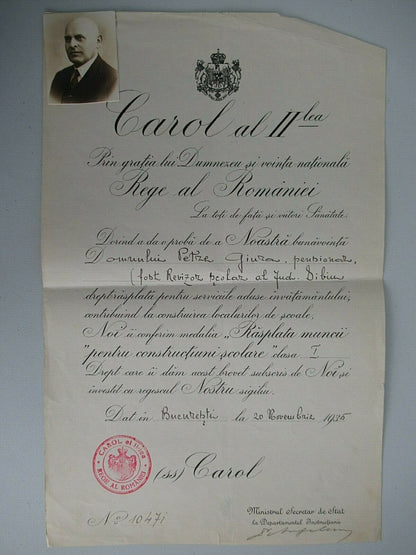 Carol al II lea
Prin grația lui Dumnezeu și voința națională
Rege al României
La toți de față și viitori Sănătate.
Dorind a da o probă de a Noastră bunăvoință
Domnului Petre Giura, pensionar,
(fost Revizor școlar al Jud. Sibiu
drept răsplată pentru serviciile aduse învățământului,
contribuind la construirea localurilor de școale,
Noi îi conferim medalia „Răsplata muncii
pentru construcțiuni școlare" clasa I
Drept care îi dăm acest brevet subscris de Noi și
investit cu regescul Nostru sigiliu.
Dat în București la 20 Noembrie 1935
CAROL al II lea
REGE AL ROMÂNIEI
(ss) Carol
Ministrul Secretar de Stat
la Departamentul Instrucțiunii
Nº 10471